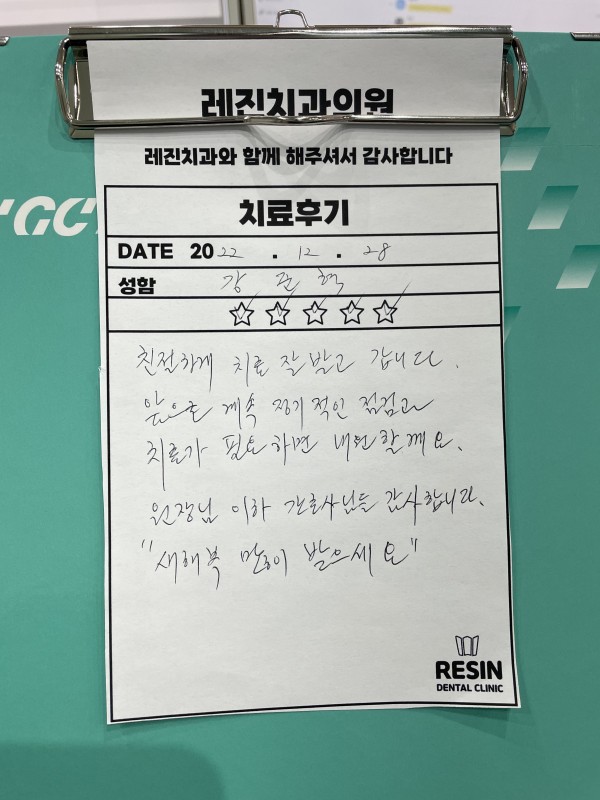 레진치과의원
레진치과와 함께 해주셔서 감사합니다
GC
치료후기
DATE 2022 . 12 . 28
성함 강 준 혁
친절하게 치료 잘 받고 갑니다.
앞으로 계속 정기적인 점검과
치료가 필요하면 내원할께요.
원장님 이하 간호사님들 감사합니다.
"새해복 많이 받으세요"
RESIN
DENTAL CLINIC